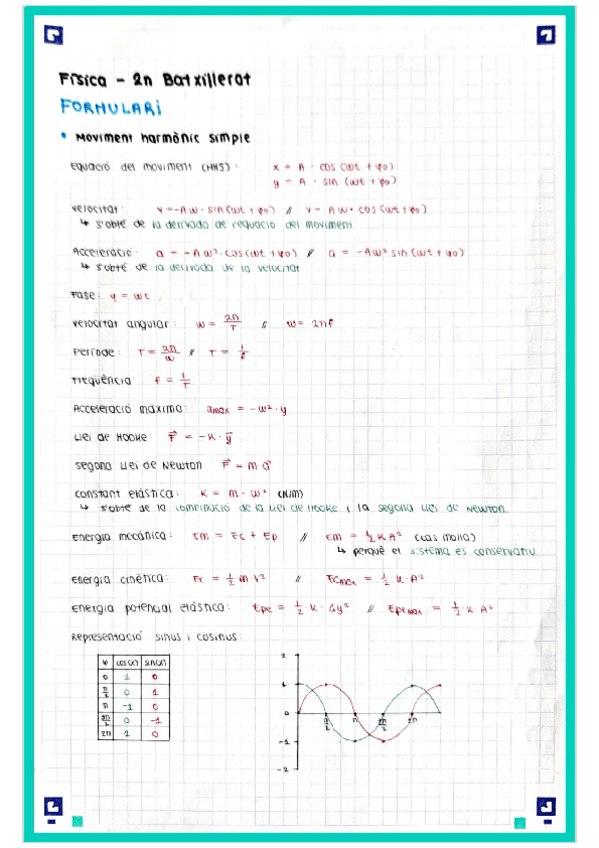 Física - 2n Batxillerat
FORMULARI
• Moviment harmònic simple
Equació del moviment (MHS): x = A · cos (ωt + φ₀)
y = A · sin (ωt + φ₀)
Velocitat: v = -Aω · sin (ωt + φ₀) // v = Aω · cos (ωt + φ₀)
↳ s'obté de la derivada de l'equació del moviment
Acceleració: a = -Aω² · cos (ωt + φ₀) // a = -Aω² sin (ωt + φ₀)
↳ s'obté de la derivada de la velocitat
Fase: φ = ωt
Velocitat angular: ω = 2π/T // ω = 2πf
Període: T = 2π/ω // T = 1/f
Freqüència f = 1/T
Acceleració màxima: amax = -ω² · y
Llei de Hooke: F⃗ = -K · y⃗
Segona Llei de Newton F⃗ = m a⃗
Constant elàstica: K = m · ω² (N/m)
↳ s'obté de la combinació de la Llei de Hooke i la segona Llei de Newton.
Energia mecànica: Em = Ec + Ep // Em = 1/2 K A² (cas molla)
↳ perquè el sistema és conservatiu
Energia cinètica: Ec = 1/2 m v² // Ecmax = 1/2 K · A²
Energia potencial elàstica: Epe = 1/2 K · Δy² // Epemax = 1/2 · K A²
Representació sinus i cosinus:
φ cos(x) sin(x)
0 1 0
π/2 0 1
π -1 0
3π/2 0 -1
2π 1 0
2
1
0 π/2 π 3π/2 2π
-1
-2